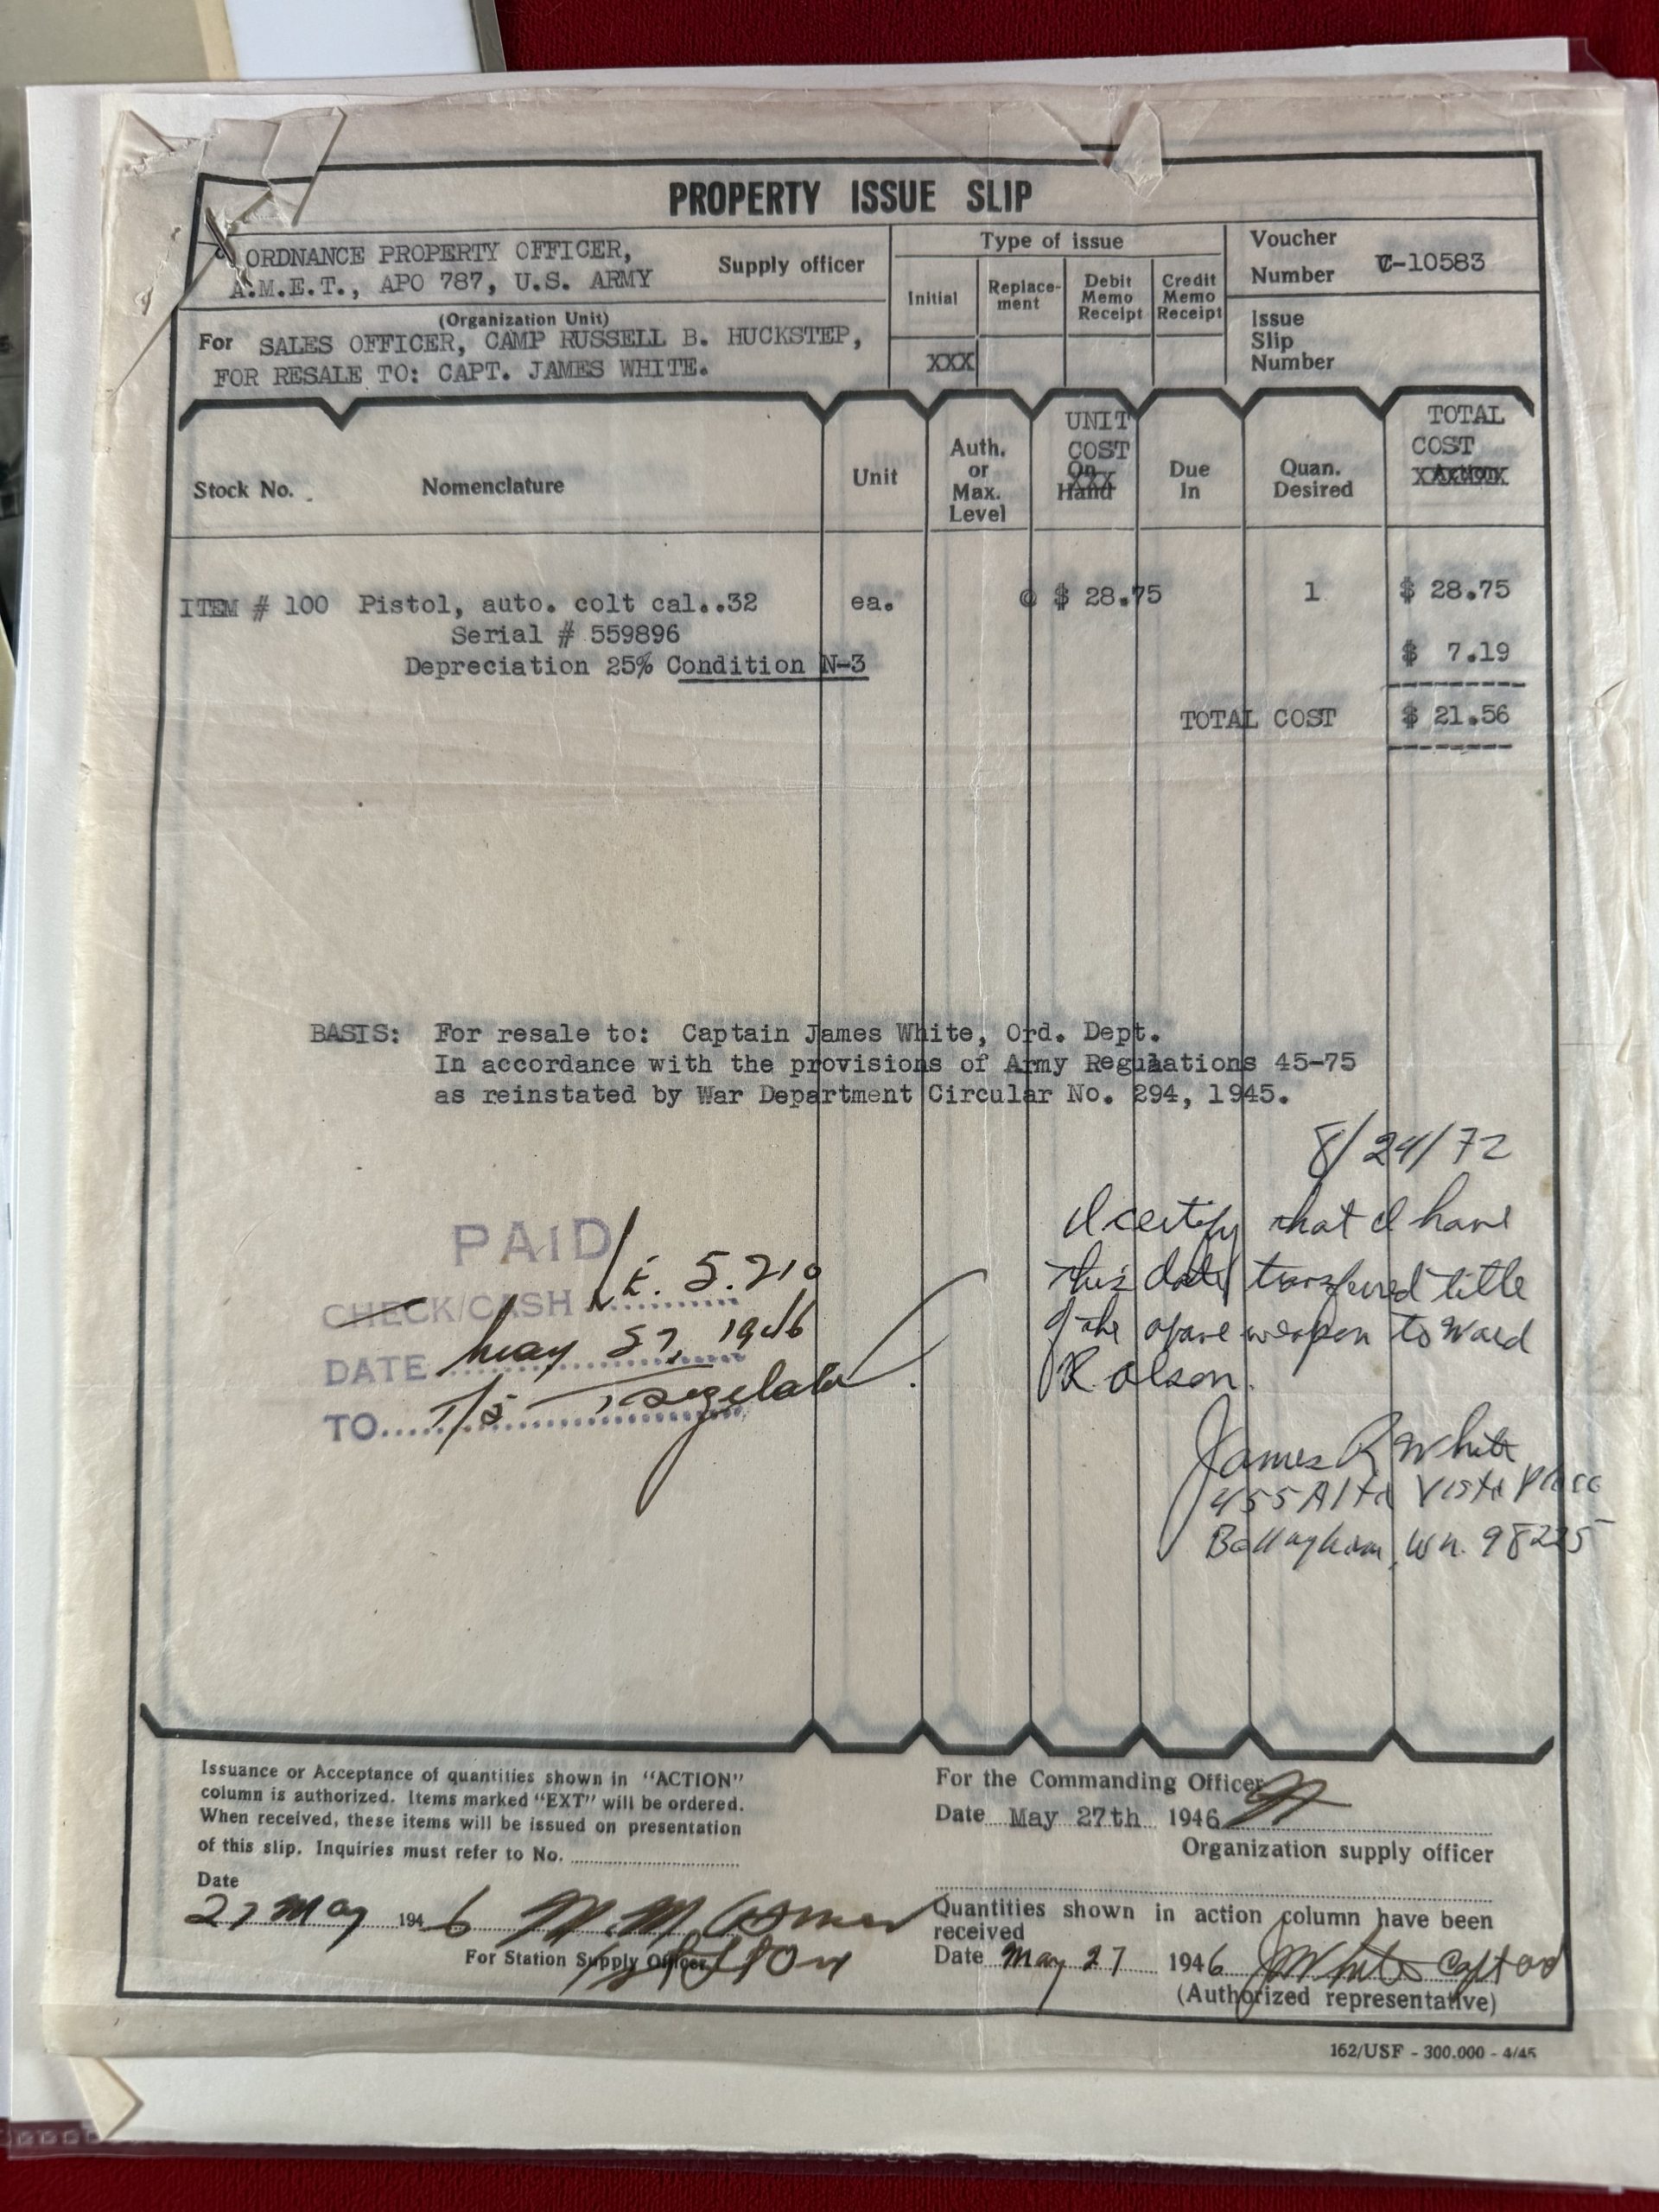 PROPERTY ISSUE SLIP
ORDNANCE PROPERTY OFFICER,
A.M.E.T., APO 787, U.S. ARMY
Supply officer
(Organization Unit)
For SALES OFFICER, CAMP RUSSELL B. HUCKSTEP,
FOR RESALE TO: CAPT. JAMES WHITE.
Type of issue
Initial
Replace-
ment
Debit
Memo
Receipt
Credit
Memo
Receipt
XXX
Voucher
Number
-10583
Issue
Slip
Number
Stock No.
Nomenclature
Unit
Auth.
or
Max.
Level
UNIT
COST
On
Hand
XXX
Due
In
Quan.
Desired
TOTAL
COST
Action
ITEM # 100 Pistol, auto. colt cal..32 ea. @ $ 28.75 1 $ 28.75
Serial # 559896
Depreciation 25% Condition N-3 $ 7.19
TOTAL COST $ 21.56
BASIS: For resale to: Captain James White, Ord. Dept.
In accordance with the provisions of Army Regulaations 45-75
as reinstated by War Department Circular No. 294, 1945.
8/24/72
I certify that I have
this date transferred title
of the above weapon to Ward
R. Olson.
James R White
455 Alta Vista Place
Bellingham, Wn. 98225
PAID
CHECK/CASH £E. 5.210
DATE May 27, 1946
TO T/5
Issuance or Acceptance of quantities shown in "ACTION"
column is authorized. Items marked "EXT" will be ordered.
When received, these items will be issued on presentation
of this slip. Inquiries must refer to No.
Date
27 May 1946
For Station Supply Officer
For the Commanding Officer
Date May 27th 1946
Organization supply officer
Quantities shown in action column have been
received
Date May 27 1946 J White Capt Ord
(Authorized representative)
162/USF - 300.000 - 4/45